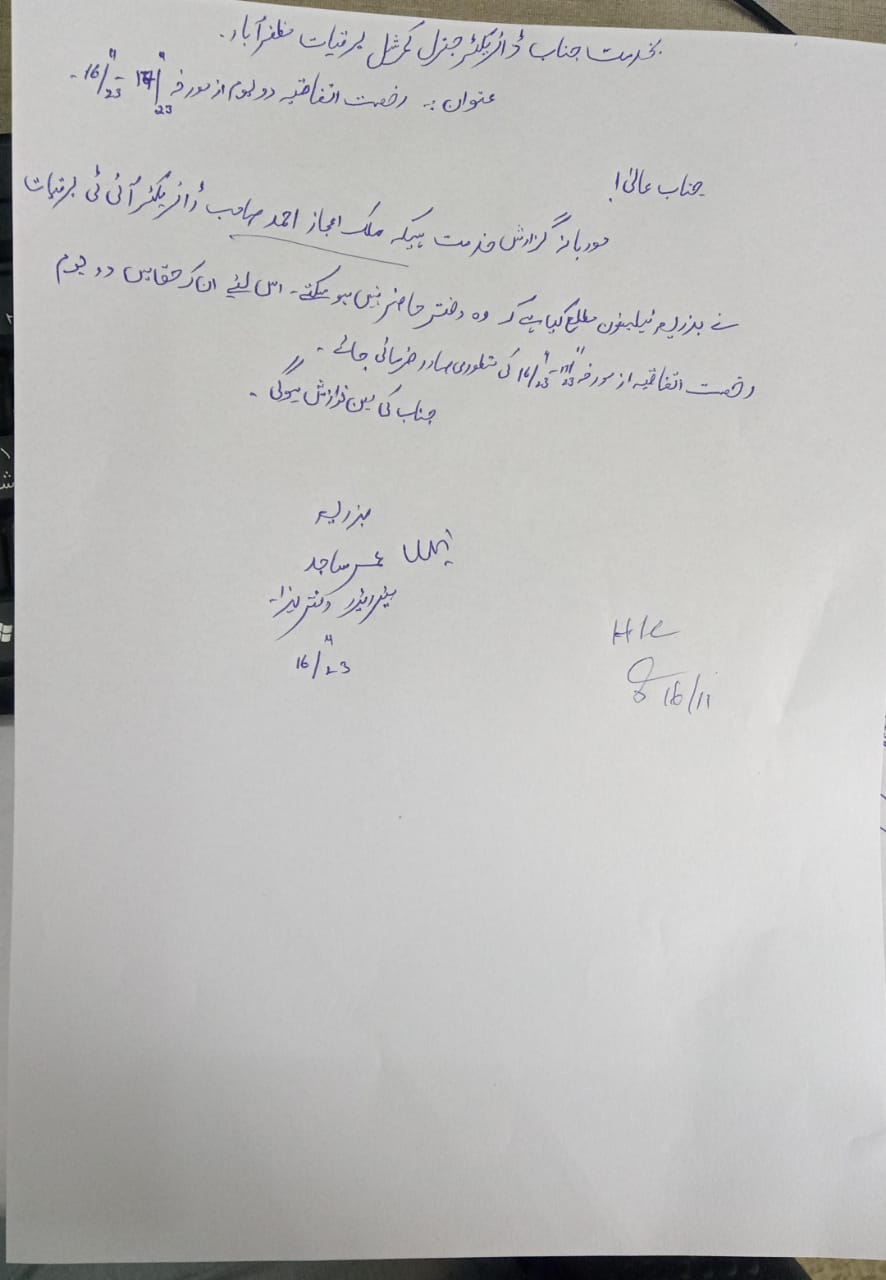 بخدمت جناب ڈائریکٹر جنرل کمرشل برقیات مظفرآباد۔
عنوان :۔ رخصت اتفاقیہ دو یوم از مورخہ 16/11/23
جناب عالی!
مودبانہ گزارش خدمت ہیکہ ملک اعجاز احمد صاحب ڈائریکٹر آئی ٹی برقیات
نے بذریعہ ٹیلیفون مطلع کیا ہے کہ وہ دفتر حاضر نہیں ہو سکتے۔ اس لئیے ان کے حق میں دو یوم
رخصت اتفاقیہ از مورخہ 16/11/23 کی منظوری صادر فرمائی جائے۔
جناب کی عین نوازش ہوگی۔
بذریعہ
ساجد
دفتر ہذا۔
16/11/23
H/C
16/11